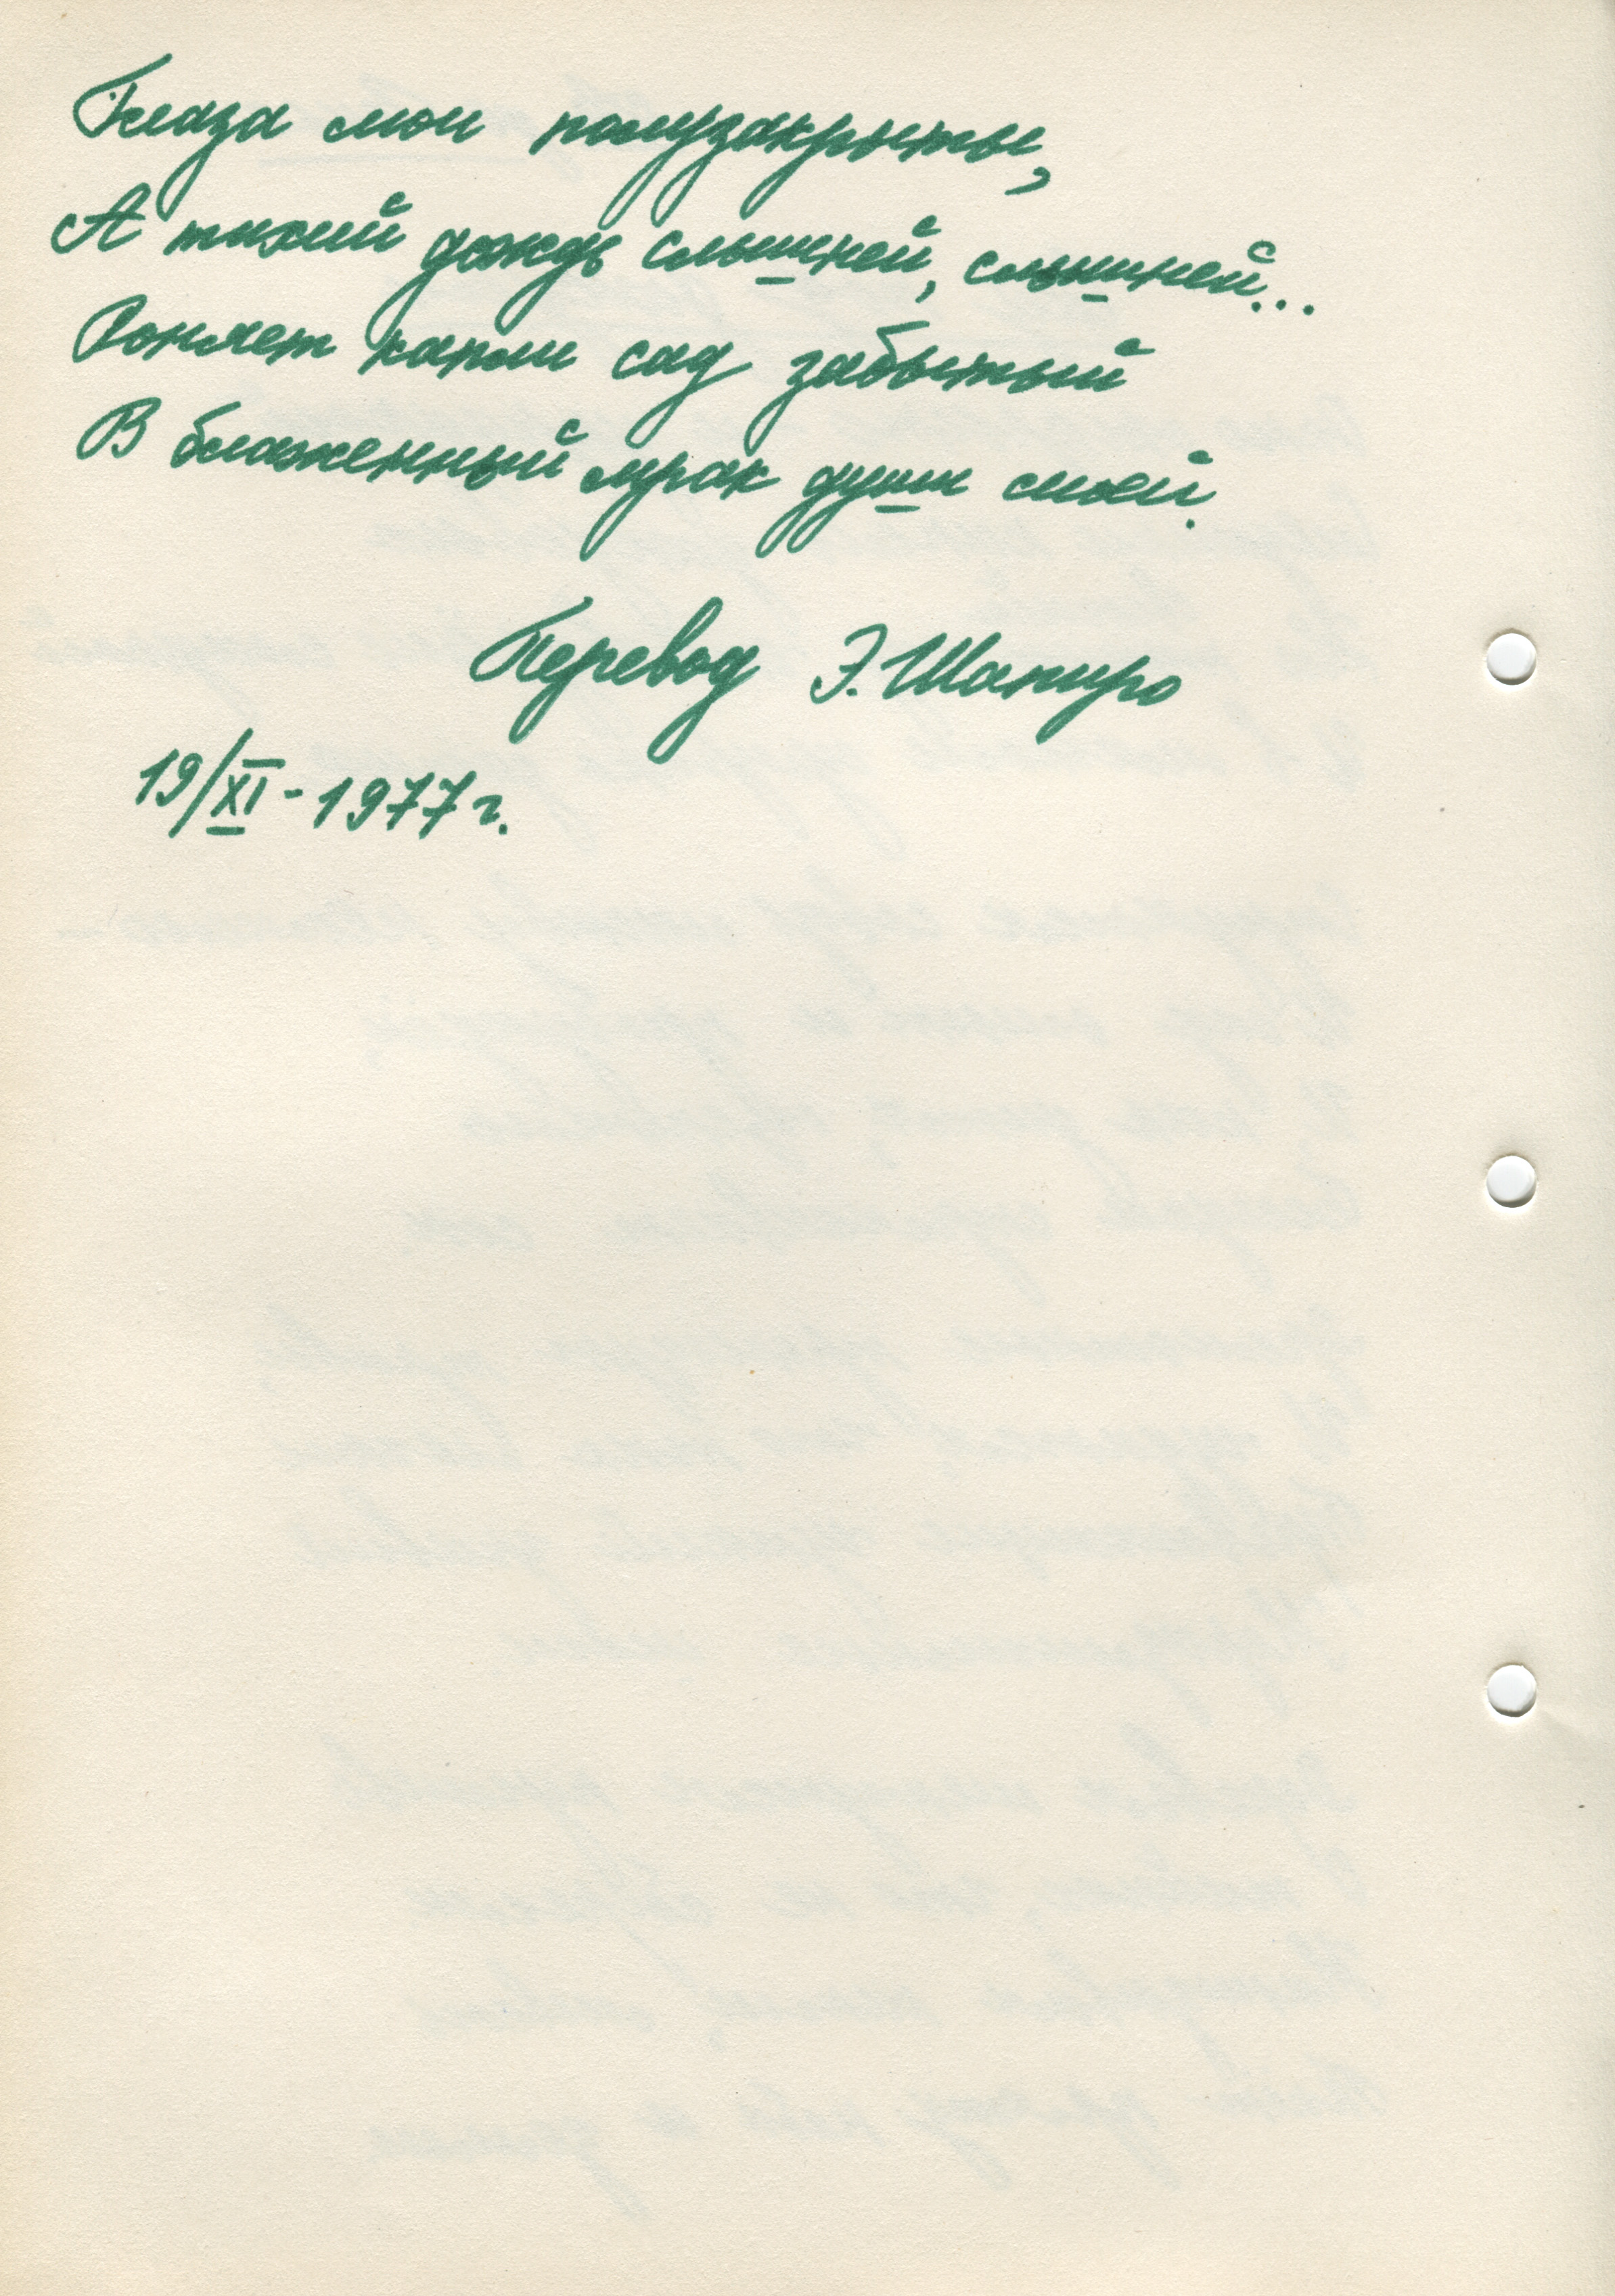 Глаза мои полузакрыты,
А тихий дождь слышней, слышней...
Роняет капли сад забытый
В блаженный мрак души моей.
Перевод Э. Шапиро
19/XI - 1977 г.